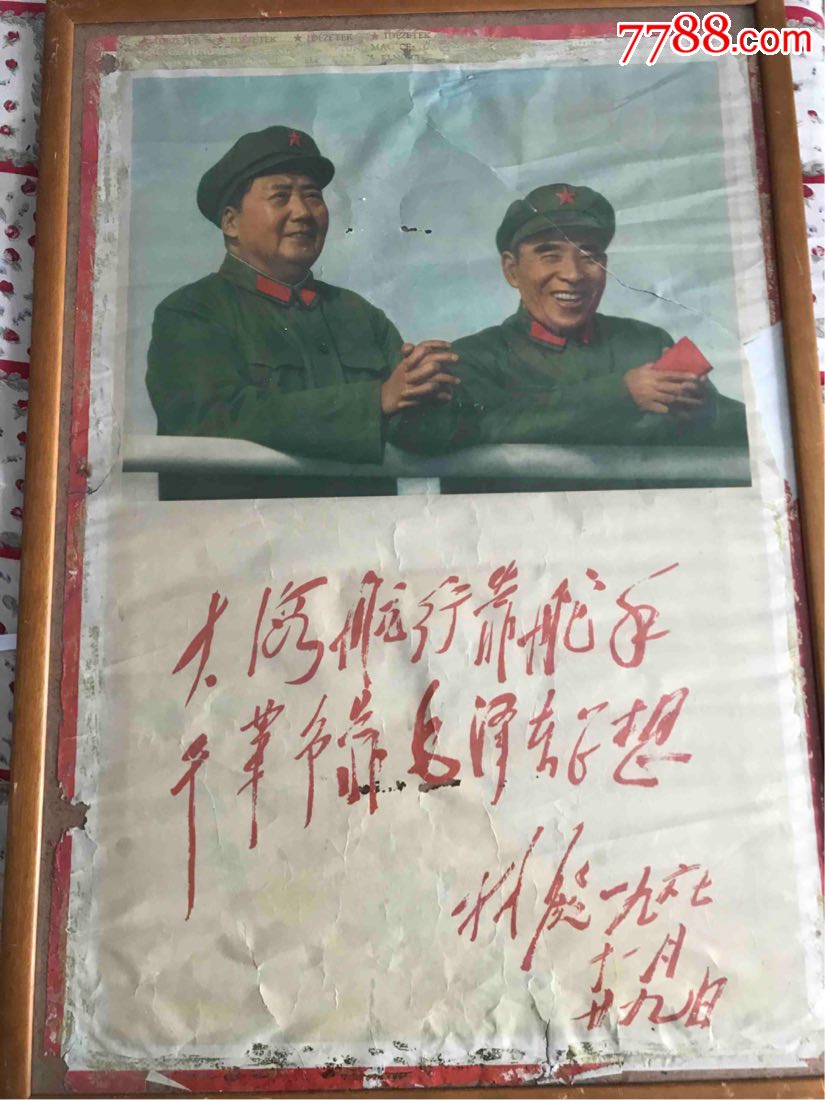 7788.com
★ IDEZETEK ★ IDEZETEK ★ IDEZETEK
MAO CE
大海航行靠舵手
干革命靠毛泽东思想
林彪一九六七
十一月
廿九日